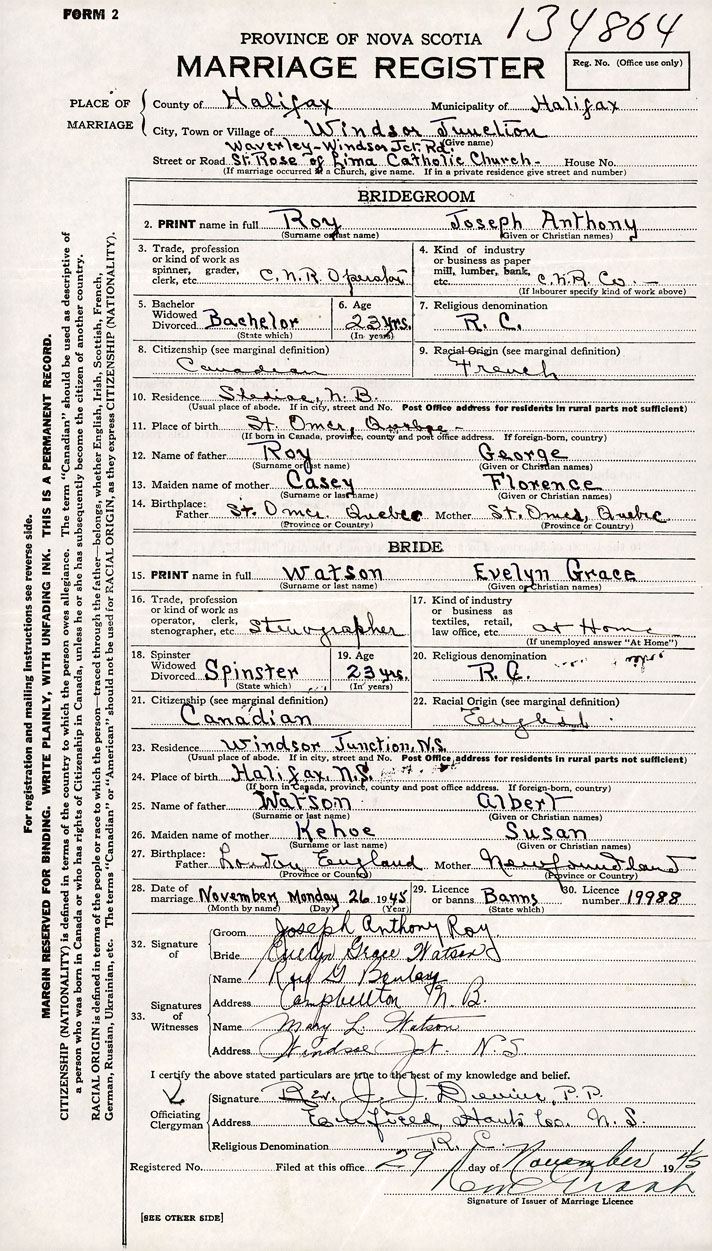 FORM 2
134864
PROVINCE OF NOVA SCOTIA
MARRIAGE REGISTER
Reg. No. (Office use only)
PLACE OF MARRIAGE
County of Halifax Municipality of Halifax
City, Town or Village of Windsor Junction
(Give name)
Waverley-Windsor Jct. Rd.
Street or Road St. Rose of Lima Catholic Church - House No.
(If marriage occurred in a Church, give name. If in a private residence give street and number)
BRIDEGROOM
2. PRINT name in full Roy Joseph Anthony
(Surname or last name) (Given or Christian names)
3. Trade, profession or kind of work as spinner, grader, clerk, etc. C.N.R. Operator
4. Kind of industry or business as paper mill, lumber, bank, etc. C.N.R. Co. —
(If labourer specify kind of work above)
5. Bachelor Widowed Divorced Bachelor
(State which)
6. Age 23 yrs.
(In years)
7. Religious denomination R. C.
8. Citizenship (see marginal definition) Canadian
9. Racial Origin (see marginal definition) French
10. Residence Shediac, N. B.
(Usual place of abode. If in city, street and No. Post Office address for residents in rural parts not sufficient)
11. Place of birth St. Omer, Quebec -
(If born in Canada, province, county and post office address. If foreign-born, country)
12. Name of father Roy George
(Surname or last name) (Given or Christian names)
13. Maiden name of mother Casey Florence
(Surname or last name) (Given or Christian names)
14. Birthplace: Father St. Omer, Quebec Mother St. Omer, Quebec
(Province or Country) (Province or Country)
BRIDE
15. PRINT name in full Watson Evelyn Grace
(Surname or last name) (Given or Christian names)
16. Trade, profession or kind of work as operator, clerk, stenographer, etc. Stenographer
17. Kind of industry or business as textiles, retail, law office, etc. at Home
(If unemployed answer "At Home")
18. Spinster Widowed Divorced Spinster
(State which)
19. Age 23 yrs.
(In years)
20. Religious denomination R. C.
21. Citizenship (see marginal definition) Canadian
22. Racial Origin (see marginal definition) English
23. Residence Windsor Junction, N.S.
(Usual place of abode. If in city, street and No. Post Office address for residents in rural parts not sufficient)
24. Place of birth Halifax, N.S.
(If born in Canada, province, county and post office address. If foreign-born, country)
25. Name of father Watson Albert
(Surname or last name) (Given or Christian names)
26. Maiden name of mother Kehoe Susan
(Surname or last name) (Given or Christian names)
27. Birthplace: Father London England Mother Newfoundland
(Province or Country) (Province or Country)
28. Date of marriage November, Monday 26 1945
(Month by name) (Day) (Year)
29. Licence or banns Banns
(State which)
30. Licence number 19988
32. Signature of
Groom Joseph Anthony Roy
Bride Evelyn Grace Watson
33. Signatures of Witnesses
Name Roy G
Address Campbellton N. B.
Name Mary L. Watson
Address Windsor Jct. N. S.
I certify the above stated particulars are true to the best of my knowledge and belief.
Officiating Clergyman
Signature Rev. J. J. P. P.
Address Enfield, Hants Co. N. S.
Religious Denomination R. C.
Registered No. Filed at this office 29 day of November 1945
Signature of Issuer of Marriage Licence
[SEE OTHER SIDE]
For registration and mailing instructions see reverse side.
MARGIN RESERVED FOR BINDING. WRITE PLAINLY, WITH UNFADING INK. THIS IS A PERMANENT RECORD.
CITIZENSHIP (NATIONALITY) is defined in terms of the country to which the person owes allegiance. The term "Canadian" should be used as descriptive of
a person who was born in Canada or who has rights of Citizenship in Canada, unless he or she has subsequently become the citizen of another country.
RACIAL ORIGIN is defined in terms of the people or race to which the person—traced through the father—belongs, whether English, Irish, Scottish, French,
German, Russian, Ukrainian, etc. The terms "Canadian" or "American" should not be used for RACIAL ORIGIN, as they express CITIZENSHIP (NATIONALITY).